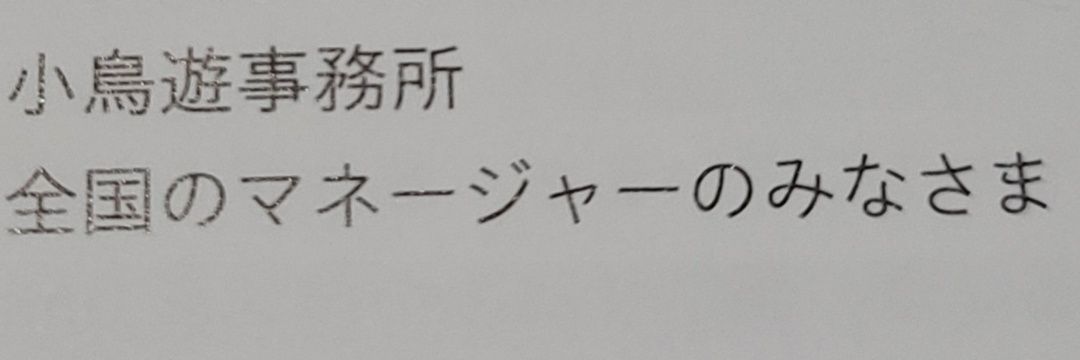 小鳥遊事務所
全国のマネージャーのみなさま